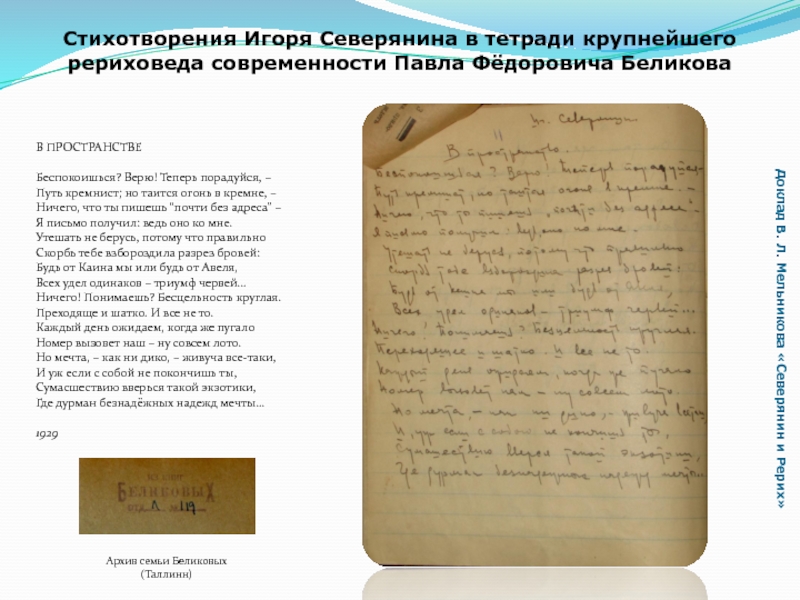 Стихотворения Игоря Северянина в тетради крупнейшего
рериховеда современности Павла Фёдоровича Беликова
В ПРОСТРАНСТВЕ
Беспокоишься? Верю! Теперь порадуйся, –
Путь кремнист; но таится огонь в кремне, –
Ничего, что ты пишешь “почти без адреса” –
Я письмо получил: ведь оно ко мне.
Утешать не берусь, потому что правильно
Скорбь тебе взбороздила разрез бровей:
Будь от Каина мы или будь от Авеля,
Всех удел одинаков – триумф червей...
Ничего! Понимаешь? Бесцельность круглая.
Преходяще и шатко. И все не то.
Каждый день ожидаем, когда же пугало
Номер вызовет наш – ну совсем лото.
Но мечта, – как ни дико, – живуча все-таки,
И уж если с собой не покончишь ты,
Сумасшествию вверься такой экзотики,
Где дурман безнадёжных надежд мечты...
1929
БЕЛИКОВЫХ
Л 119
Архив семьи Беликовых
(Таллинн)
Иг. Северянин.
В пространстве.
Беспокоишься? Верю! Теперь порадуйся, –
Путь кремнист, но таится огонь в кремне. –
Ничего, что ты пишешь, „почти без адреса“ –
Я письмо получил: ведь оно ко мне.
Утешать не берусь, потому что правильно
Скорбь тебе взбороздила разрез бровей:
Будь от Каина мы или будь от Авеля,
Всех удел одинаков – триумф червей...
Ничего! Понимаешь? Бесцельность круглая.
Переходящее и шатко. И все не то.
Каждый день ожидаем, когда же пугало
Номер вызовет наш – ну совсем лото.
Но мечта, – как ни дико, – живуча все-таки
И, уж если с собой не покончишь ты,
Сумасшествию вверься такой экзотики,
Где дурман безнадежных надежд мечты...
Доклад В. Л. Мельникова «Северянин и Рерих»